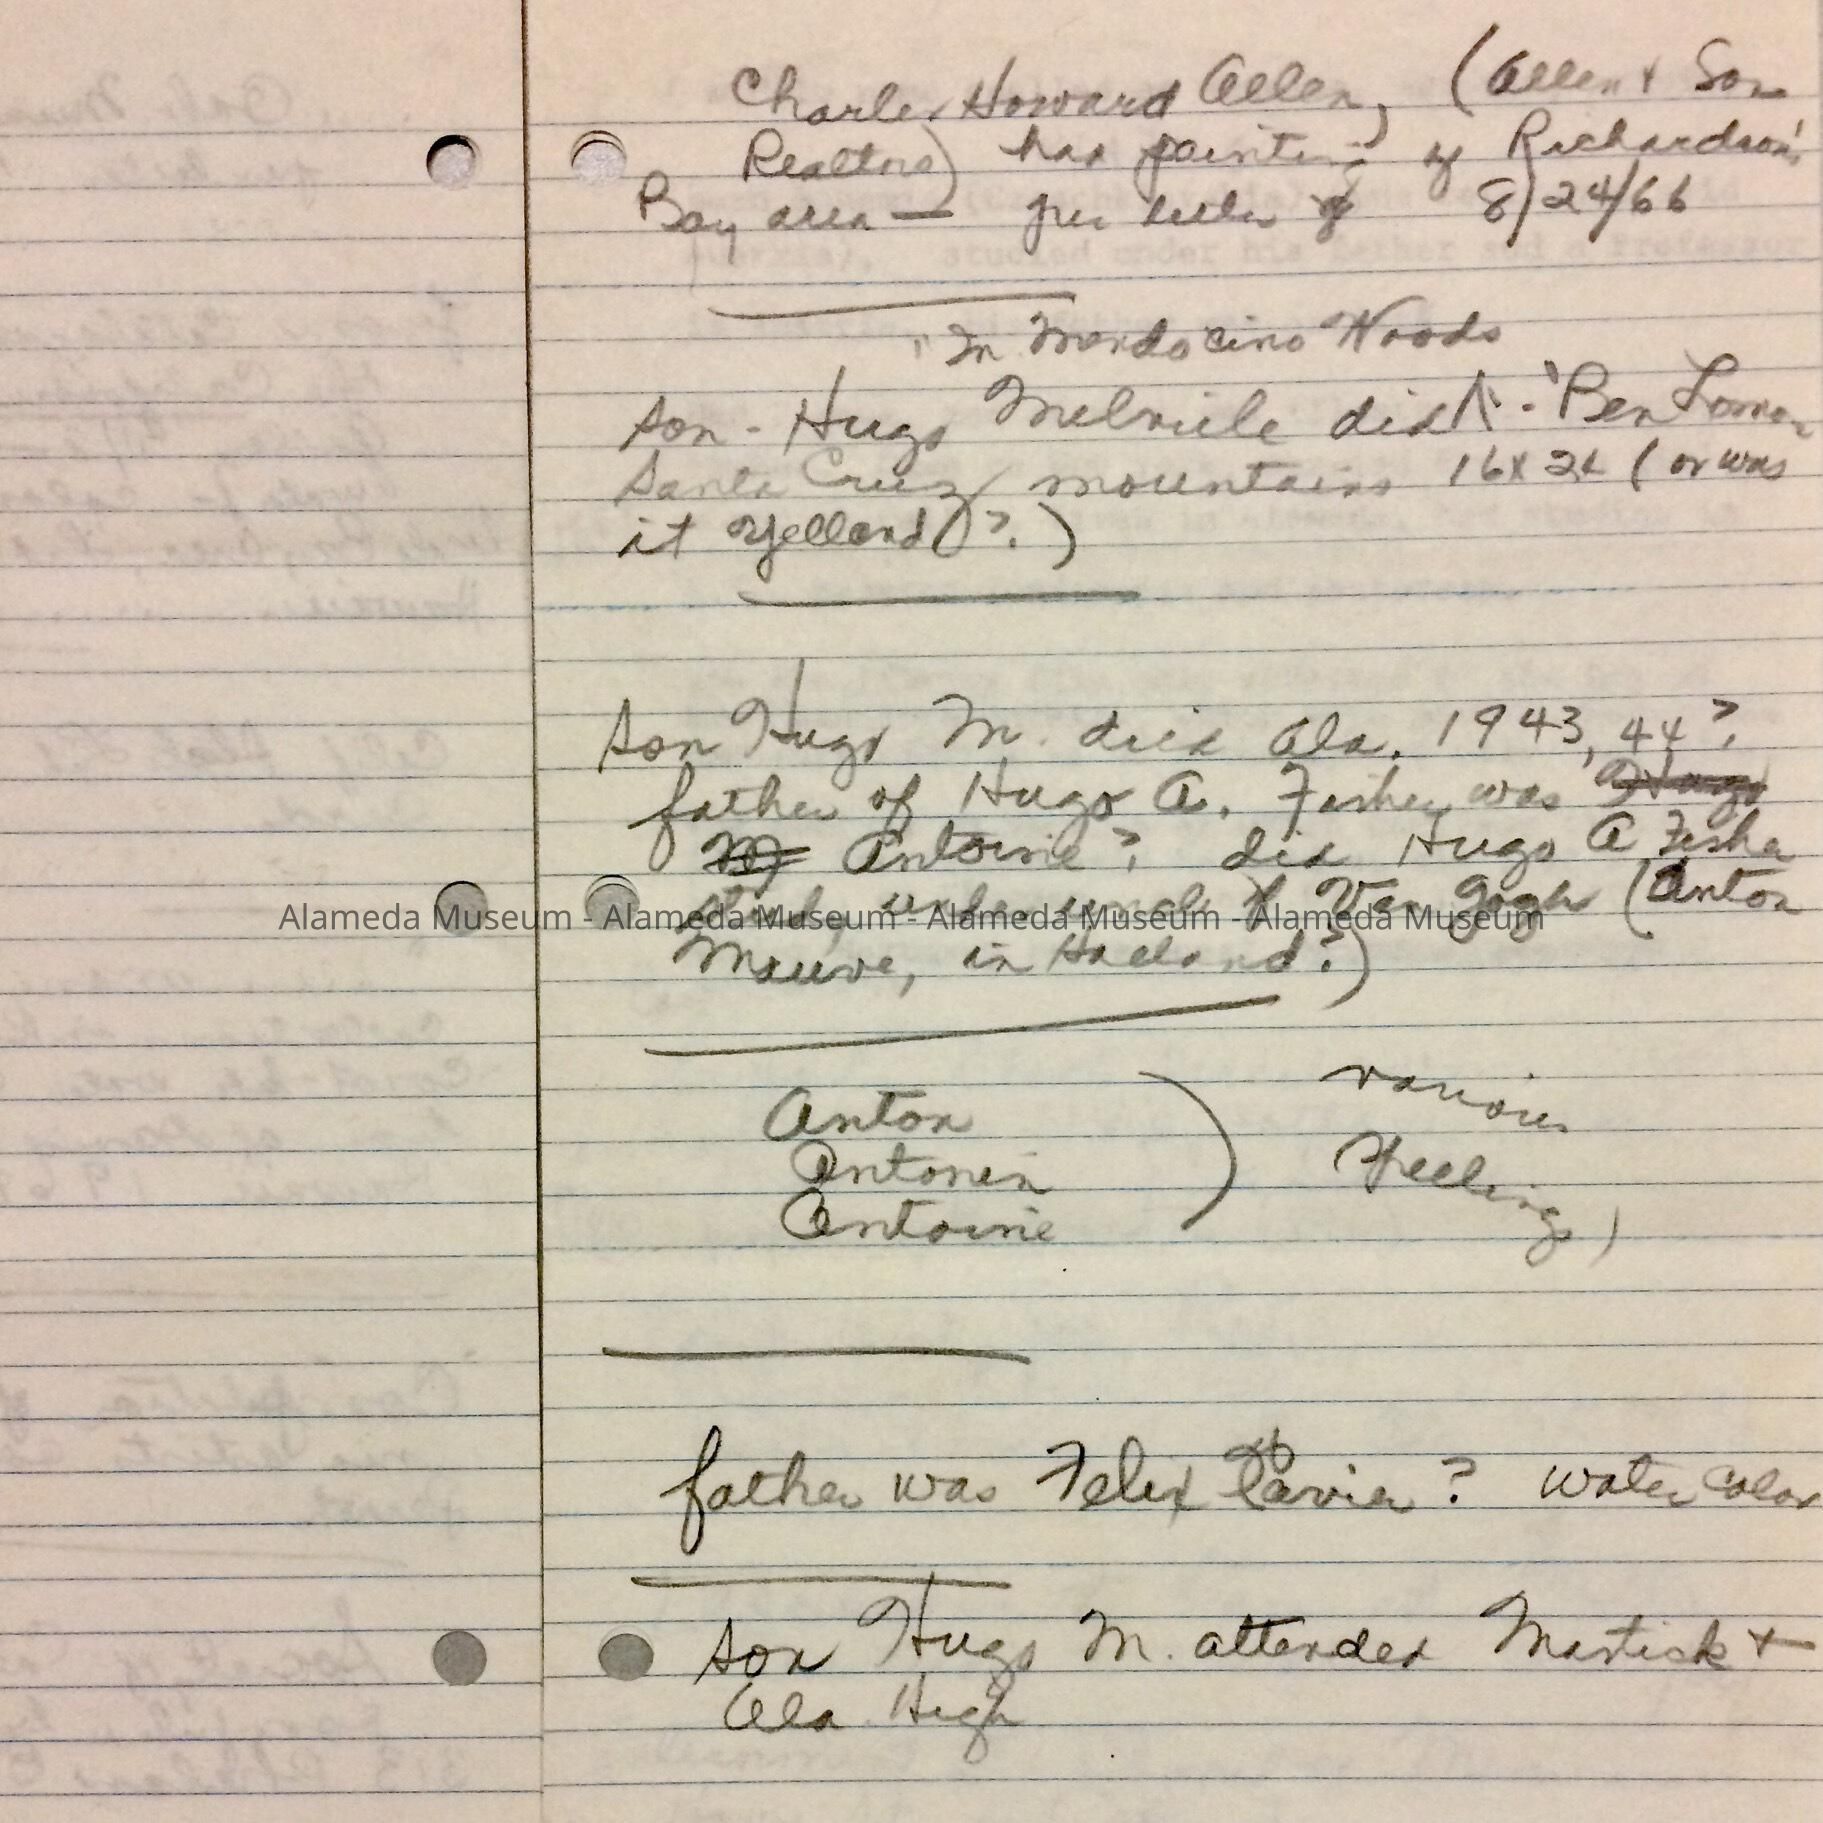 Charles Howard Allen, (Allen & Son
Realtors) has painting of Richardson's
Bay area — per letter of 8/24/66
"In Mendocino Woods
son - Hugo Melville did ^ - "Ben Lomon
Santa Cruz mountains 16 x 24 (or was
it Yelland?)
son Hugo M. died Ala. 1943, 44?
father of Hugo A. Fisher was Hugo
M Antoine? did Hugo A Fisher
study under uncle of Van Gogh (Anton
Alameda Museum - Alameda Museum - Alameda Museum - Alameda Museum
Mauve, in Holland?)
Anton
Antonin
Antoine
various
spellings)
father was Felix Xavier? water color
son Hugo M. attended Mastick +
Ala. High